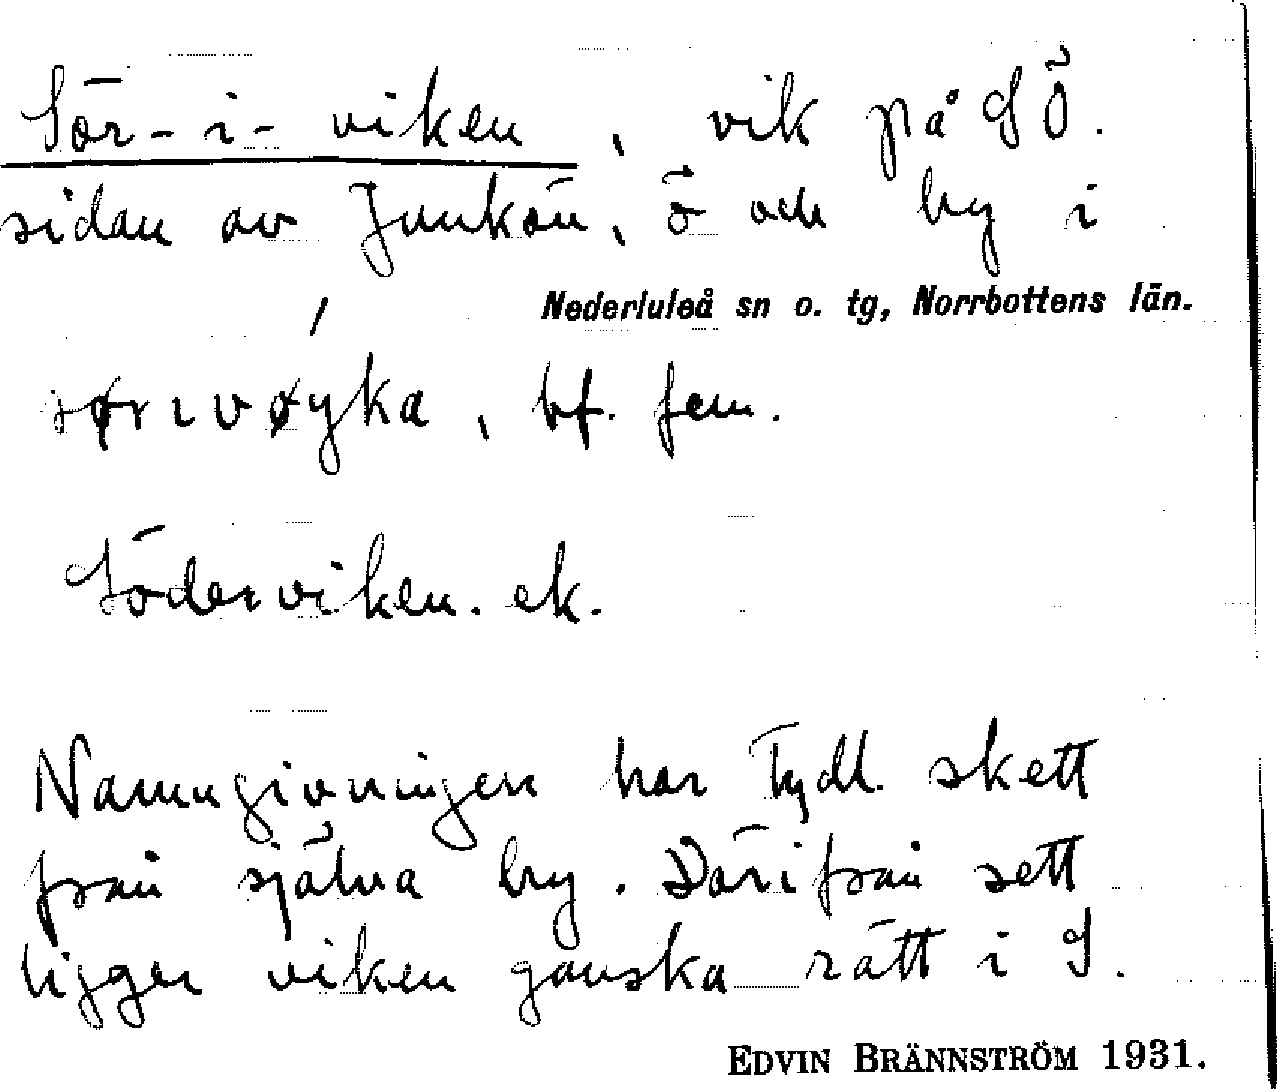 Sör-i-viken, vik på SÖ.
sidan av Junkön, ö och by i
Nederluleå sn o. tg, Norrbottens län.
sørıvøyka, bf. fem.
Söderviken. ek.
Namngivningen har tydl. skett
från själva by. Därifrån sett
ligger viken ganska rätt i S.
EDVIN BRÄNNSTRÖM 1931.